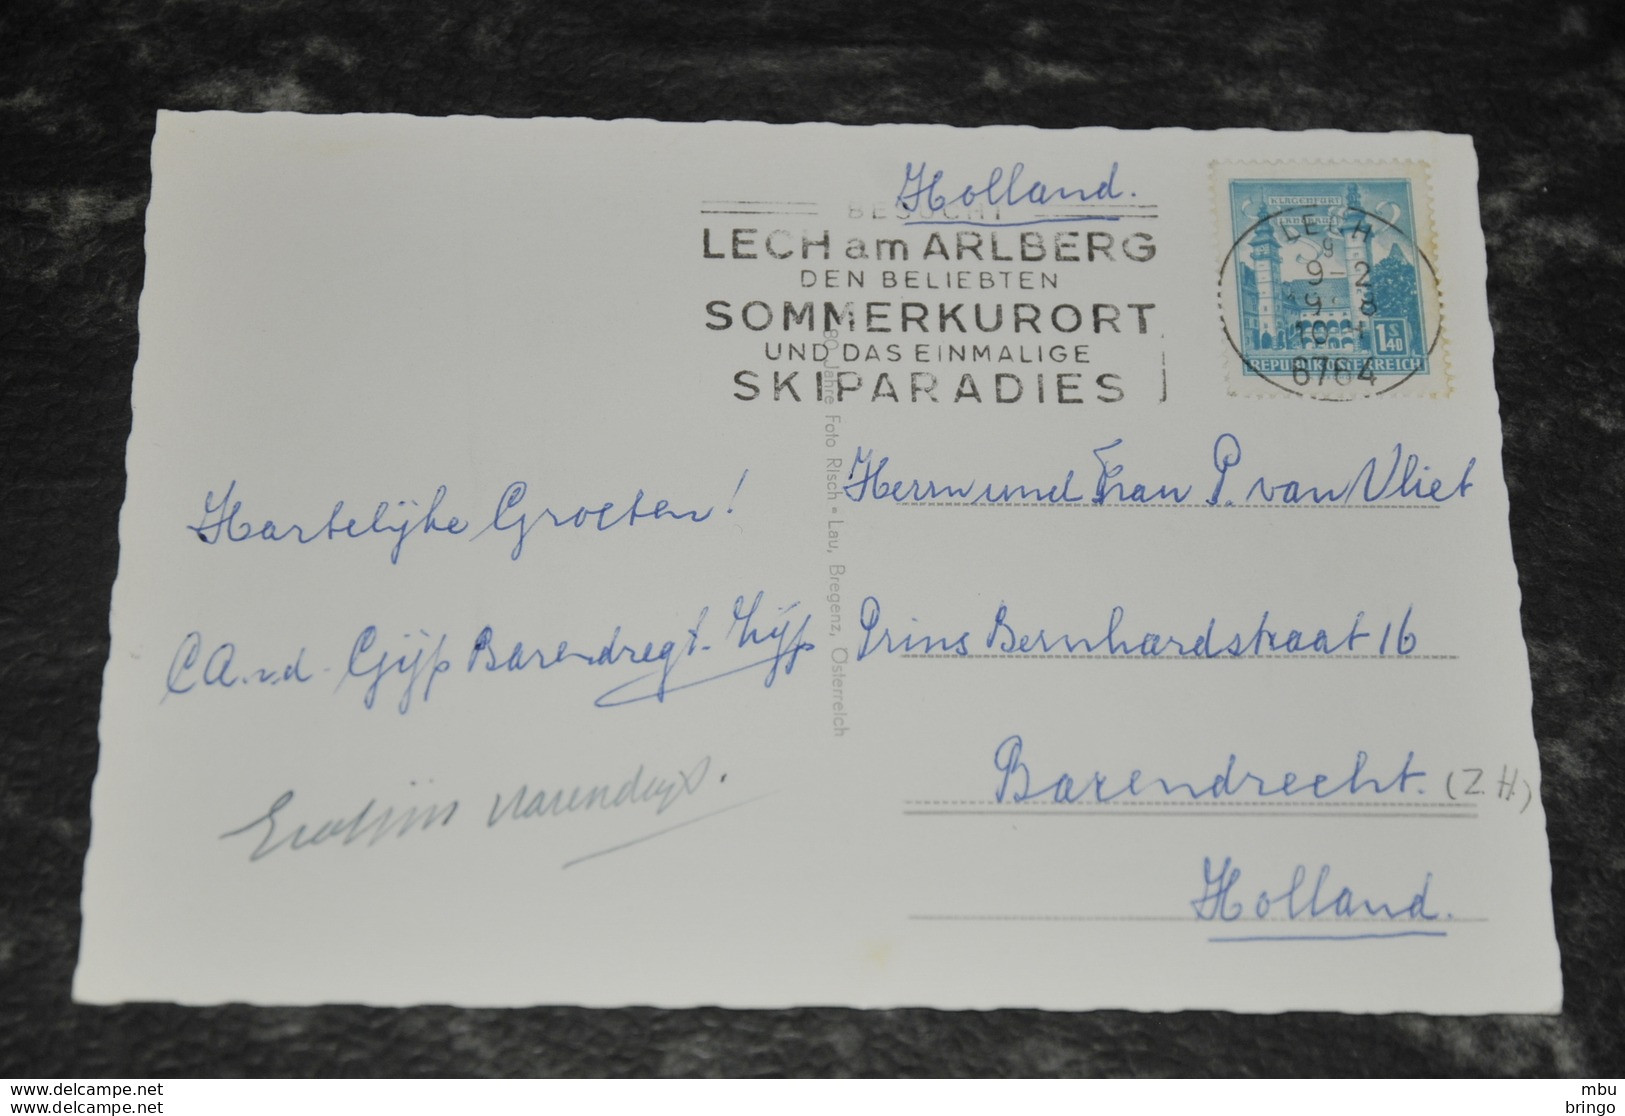 Holland.
BESUCHT
LECH am ARLBERG
DEN BELIEBTEN
SOMMERKURORT
UND DAS EINMALIGE
SKIPARADIES
KLAGENFURT
LANDHAUS
LECH
9-2
6764
1 S 40
REPUBLIK ÖSTERREICH
80 Jahre Foto Risch-Lau, Bregenz, Österreich
Hartelijke Groeten!
Herrn und Frau P. van Vliet
Prins Bernhardstraat 16
Barendrecht. (Z.H.)
Holland.
www.delcampe.net
www.delcampe.net
mbu
bringo